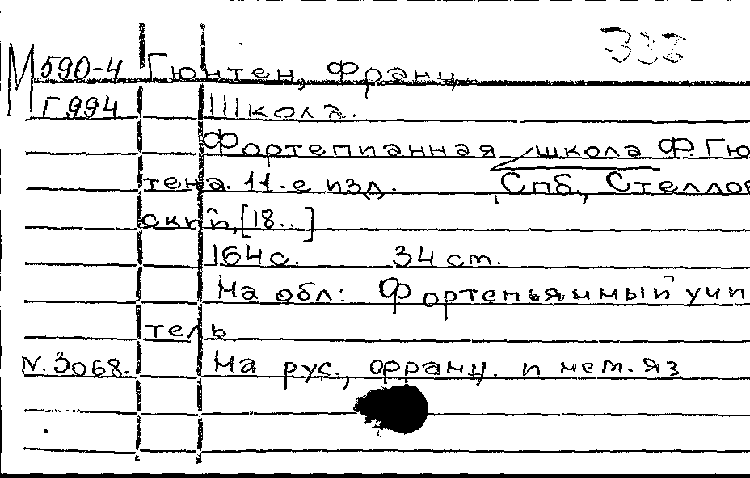 333
М 590-4 Гюнтен, Франц
Г994 Школа.
Фортепианная школа Ф. Гю
тена. 11-е изд. Спб., Стеллов
ский, [18..]
164 с. 34 см.
На обл: Фортепьянный учи
тель
N. 3068. На рус., франц. и нем. яз